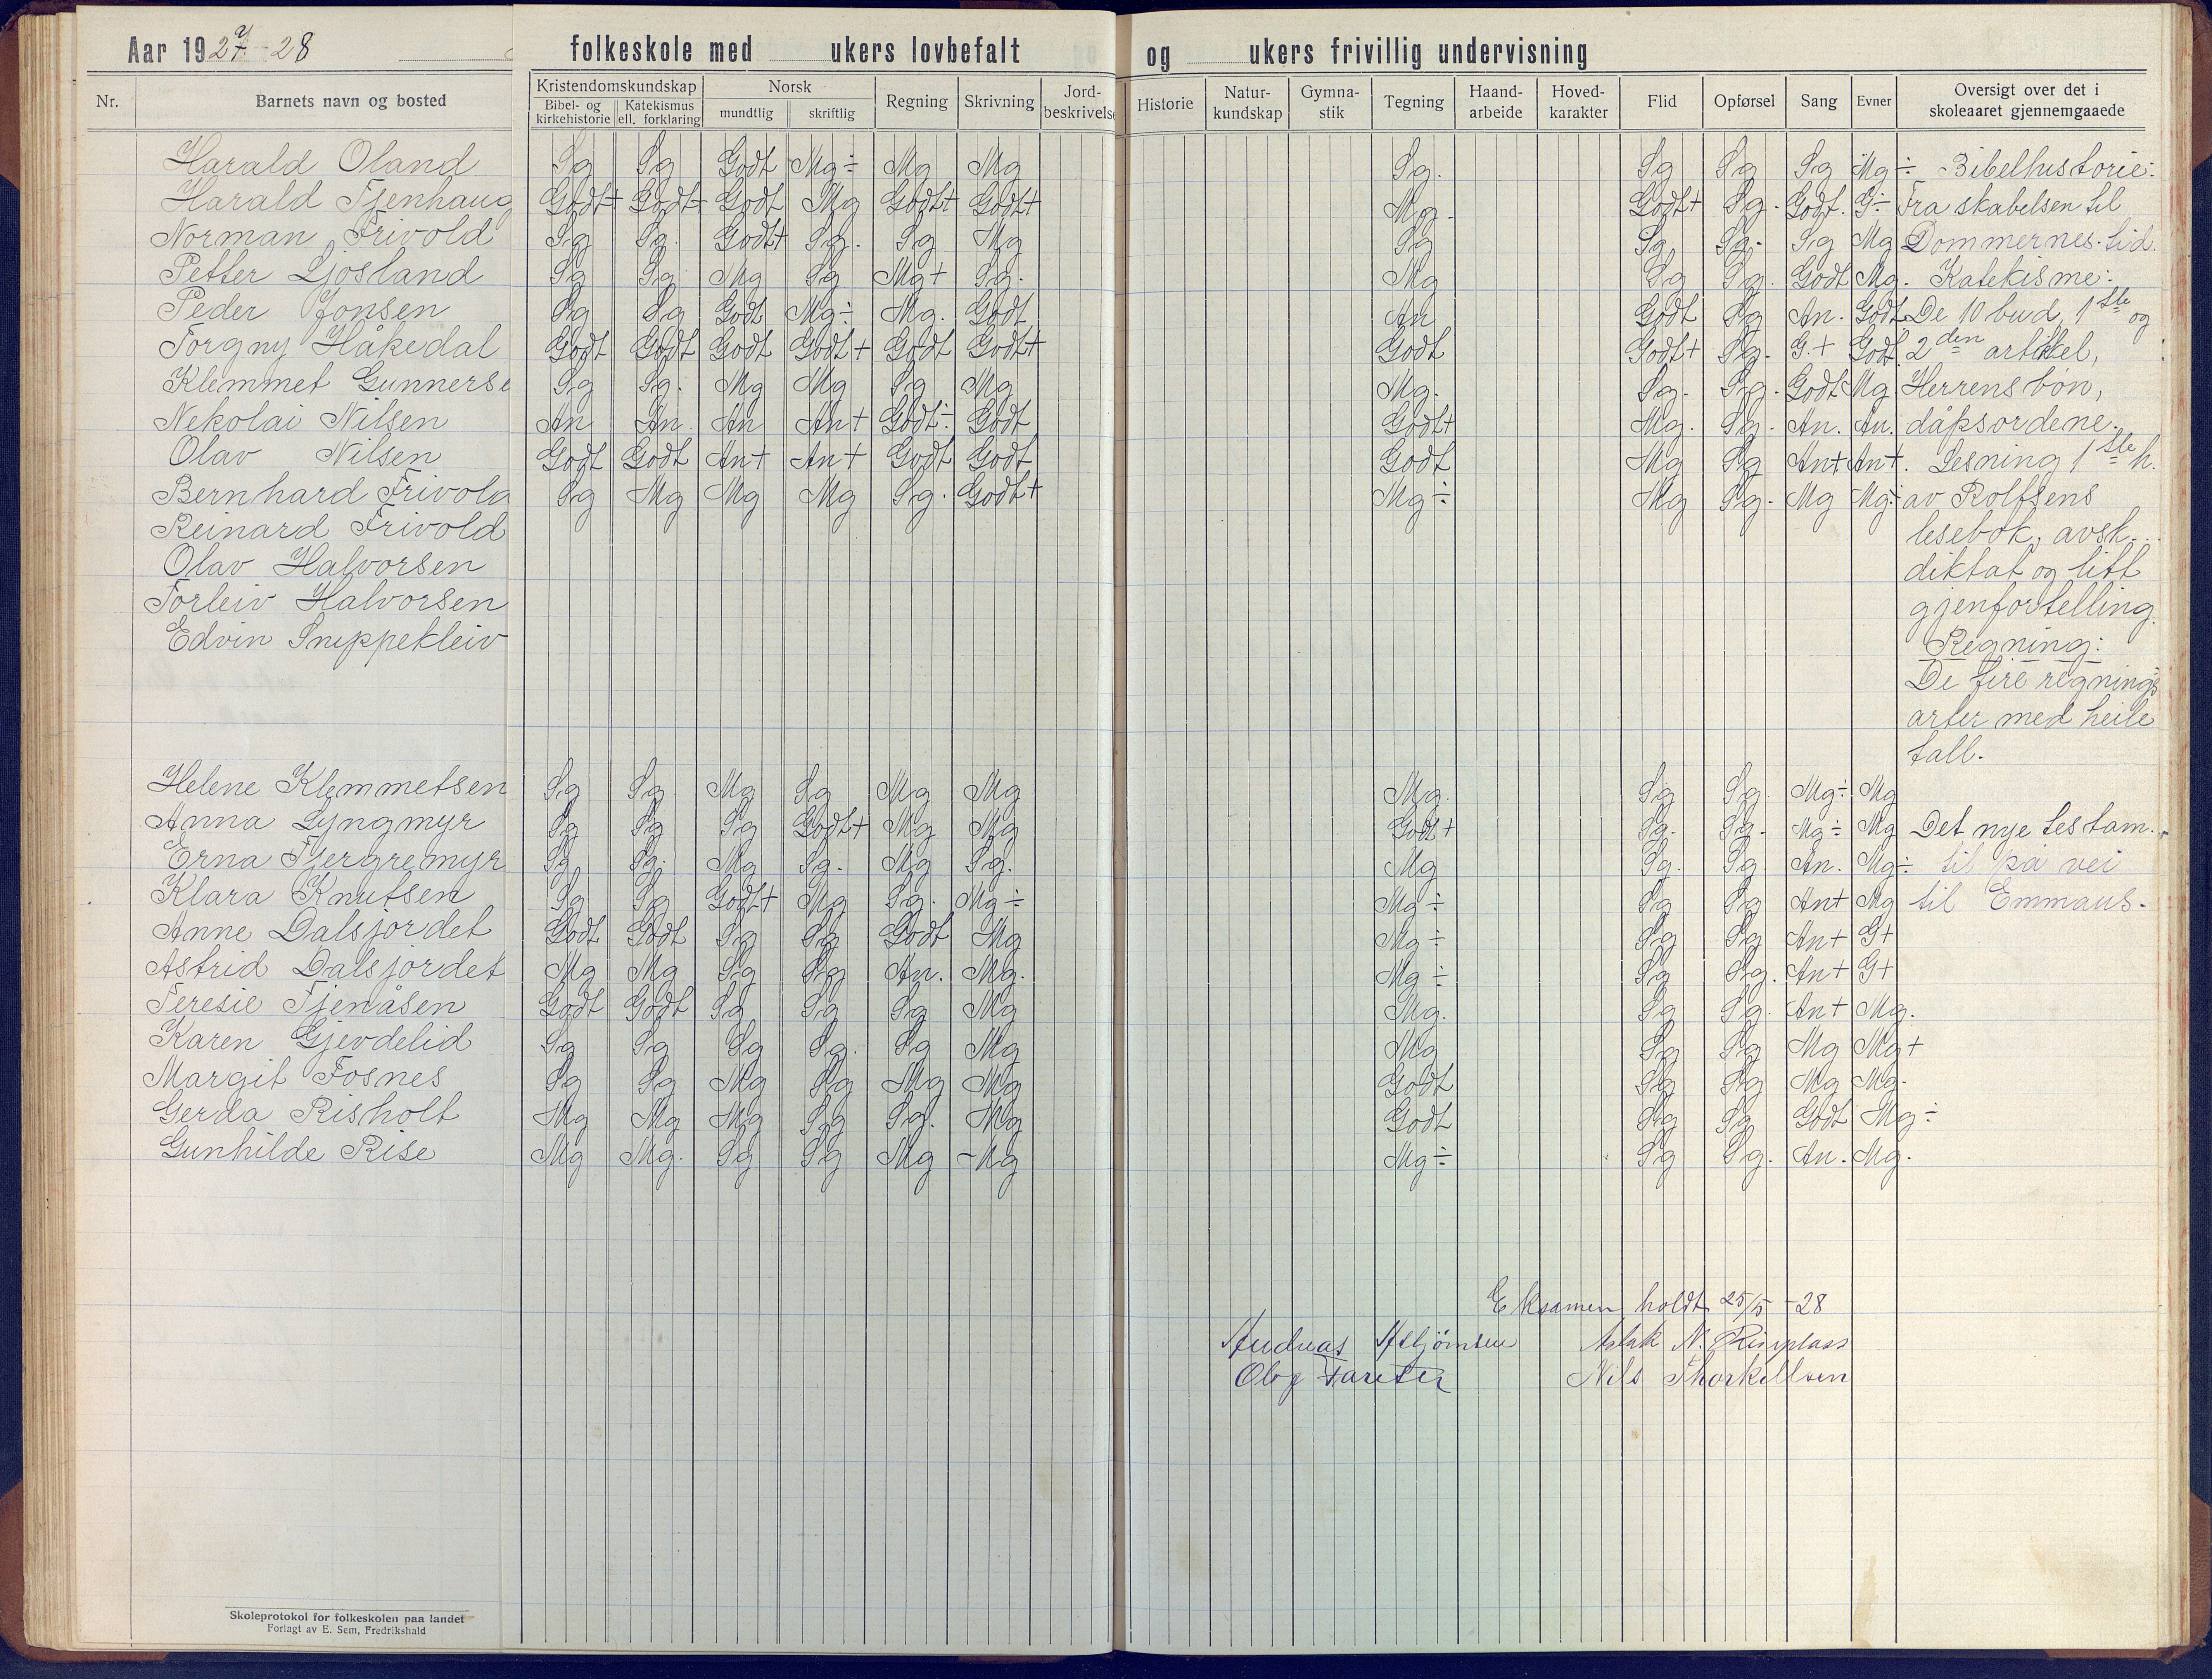 Aar 1927-28 folkeskole med ukers lovbefalt og ukers frivillig undervisning
Nr. Barnets navn og bosted Kristendomskundskap Bibel- og kirkehistorie Katekismus ell. forklaring Norsk mundtlig skriftlig Regning Skrivning Jord-beskrivelse Historie Natur-kundskap Gymna-stik Tegning Haand-arbeide Hoved-karakter Flid Opførsel Sang Evner Oversigt over det i skoleaaret gjennemgaaede
Harald Oland Sg Sg Godt Mg÷ Mg Mg Sg. Sg Sg Sg Mg÷ Bibelhistorie:
Harald Tjenhaug Godt+ Godt+ Godt Mg Godt+ Godt+ Mg. Godt+ Sg. Godt. G÷ Fra skabelsen til
Norman Frivold Sg Sg. Godt+ Sg. Sg Mg Sg Sg. Sg. Sg Mg Dommernes tid.
Petter Ljosland Sg Sg Mg Sg Mg+ Sg. Mg Sg Sg. Godt Mg. Katekisme:
Peder Jonsen Sg Sg Godt Mg÷ Mg. Godt An Godt Sg An. Godt De 10 bud, 1ste og
Torgny Håkedal Godt Godt Godt Godt+ Godt Godt+ Godt Godt+ Sg. G.+ Godt. 2den artikel,
Klemmet Gunnerse Sg Sg. Mg Mg Sg Mg Mg. Sg. Sg. Godt Mg Herrens bøn,
Nekolai Nilsen An An. An An+ Godt÷ Godt Godt+ Mg. Sg. An. An. dåpsordene.
Olav Nilsen Godt Godt An+ An+ Godt Godt Godt Mg Sg An+ An+. Lesning 1ste h.
Bernhard Frivold Sg Mg Mg Mg Sg. Godt+ Mg÷ Mg Sg. Mg Mg÷ av Rolfsens
Reinard Frivold lesebok, avsk...
Olav Halvorsen diktat og litt
Torleiv Halvorsen gjenfortelling.
Edvin Snippekleiv Regning:
De fire regnings
arter med heile
tall.
Helene Klemmetsen Sg Sg Mg Sg Mg Mg Mg. Sg Sg. Mg÷ Mg
Anna Lyngmyr Sg Sg Sg Godt+ Mg Mg Godt+ Sg. Sg. Mg÷ Mg Det nye testam.
Erna Tjergremyr Sg Sg. Mg Sg. Mg Sg. Mg Sg. Sg. An. Mg÷ til på vei
Klara Knutsen Sg Sg Godt+ Mg Sg. Mg÷ Mg÷ Sg Sg An+ Mg til Emmaus.
Anne Dalsjordet Godt Godt Sg Sg Godt Mg Mg÷ Sg Sg An+ G+
Astrid Dalsjordet Mg Mg Sg Sg An. Mg. Mg÷ Sg Sg. An+ G+
Teresie Tjenåsen Godt Godt Sg Sg Sg Mg Mg. Sg Sg. An+ Mg.
Karen Gjevdelid Sg Sg Sg Sg. Sg Mg Mg Sg Sg Mg Mg+
Margit Fosnes Sg Sg Mg Sg Mg Mg Godt Sg Sg Mg Mg.
Gerda Risholt Mg Mg Mg Sg Sg. Mg Godt Sg Sg Godt Mg÷
Gunhilde Rise Mg Mg. Sg Sg Mg Mg Mg÷ Sg Sg. An. Mg.
Eksamen holdt 25/5 -28
Andreas Asbjörnsen Aslak N. Risplass
Nils Thorkillsen
Skoleprotokol for folkeskolen paa landet
Forlagt av E. Sem, Fredrikshald